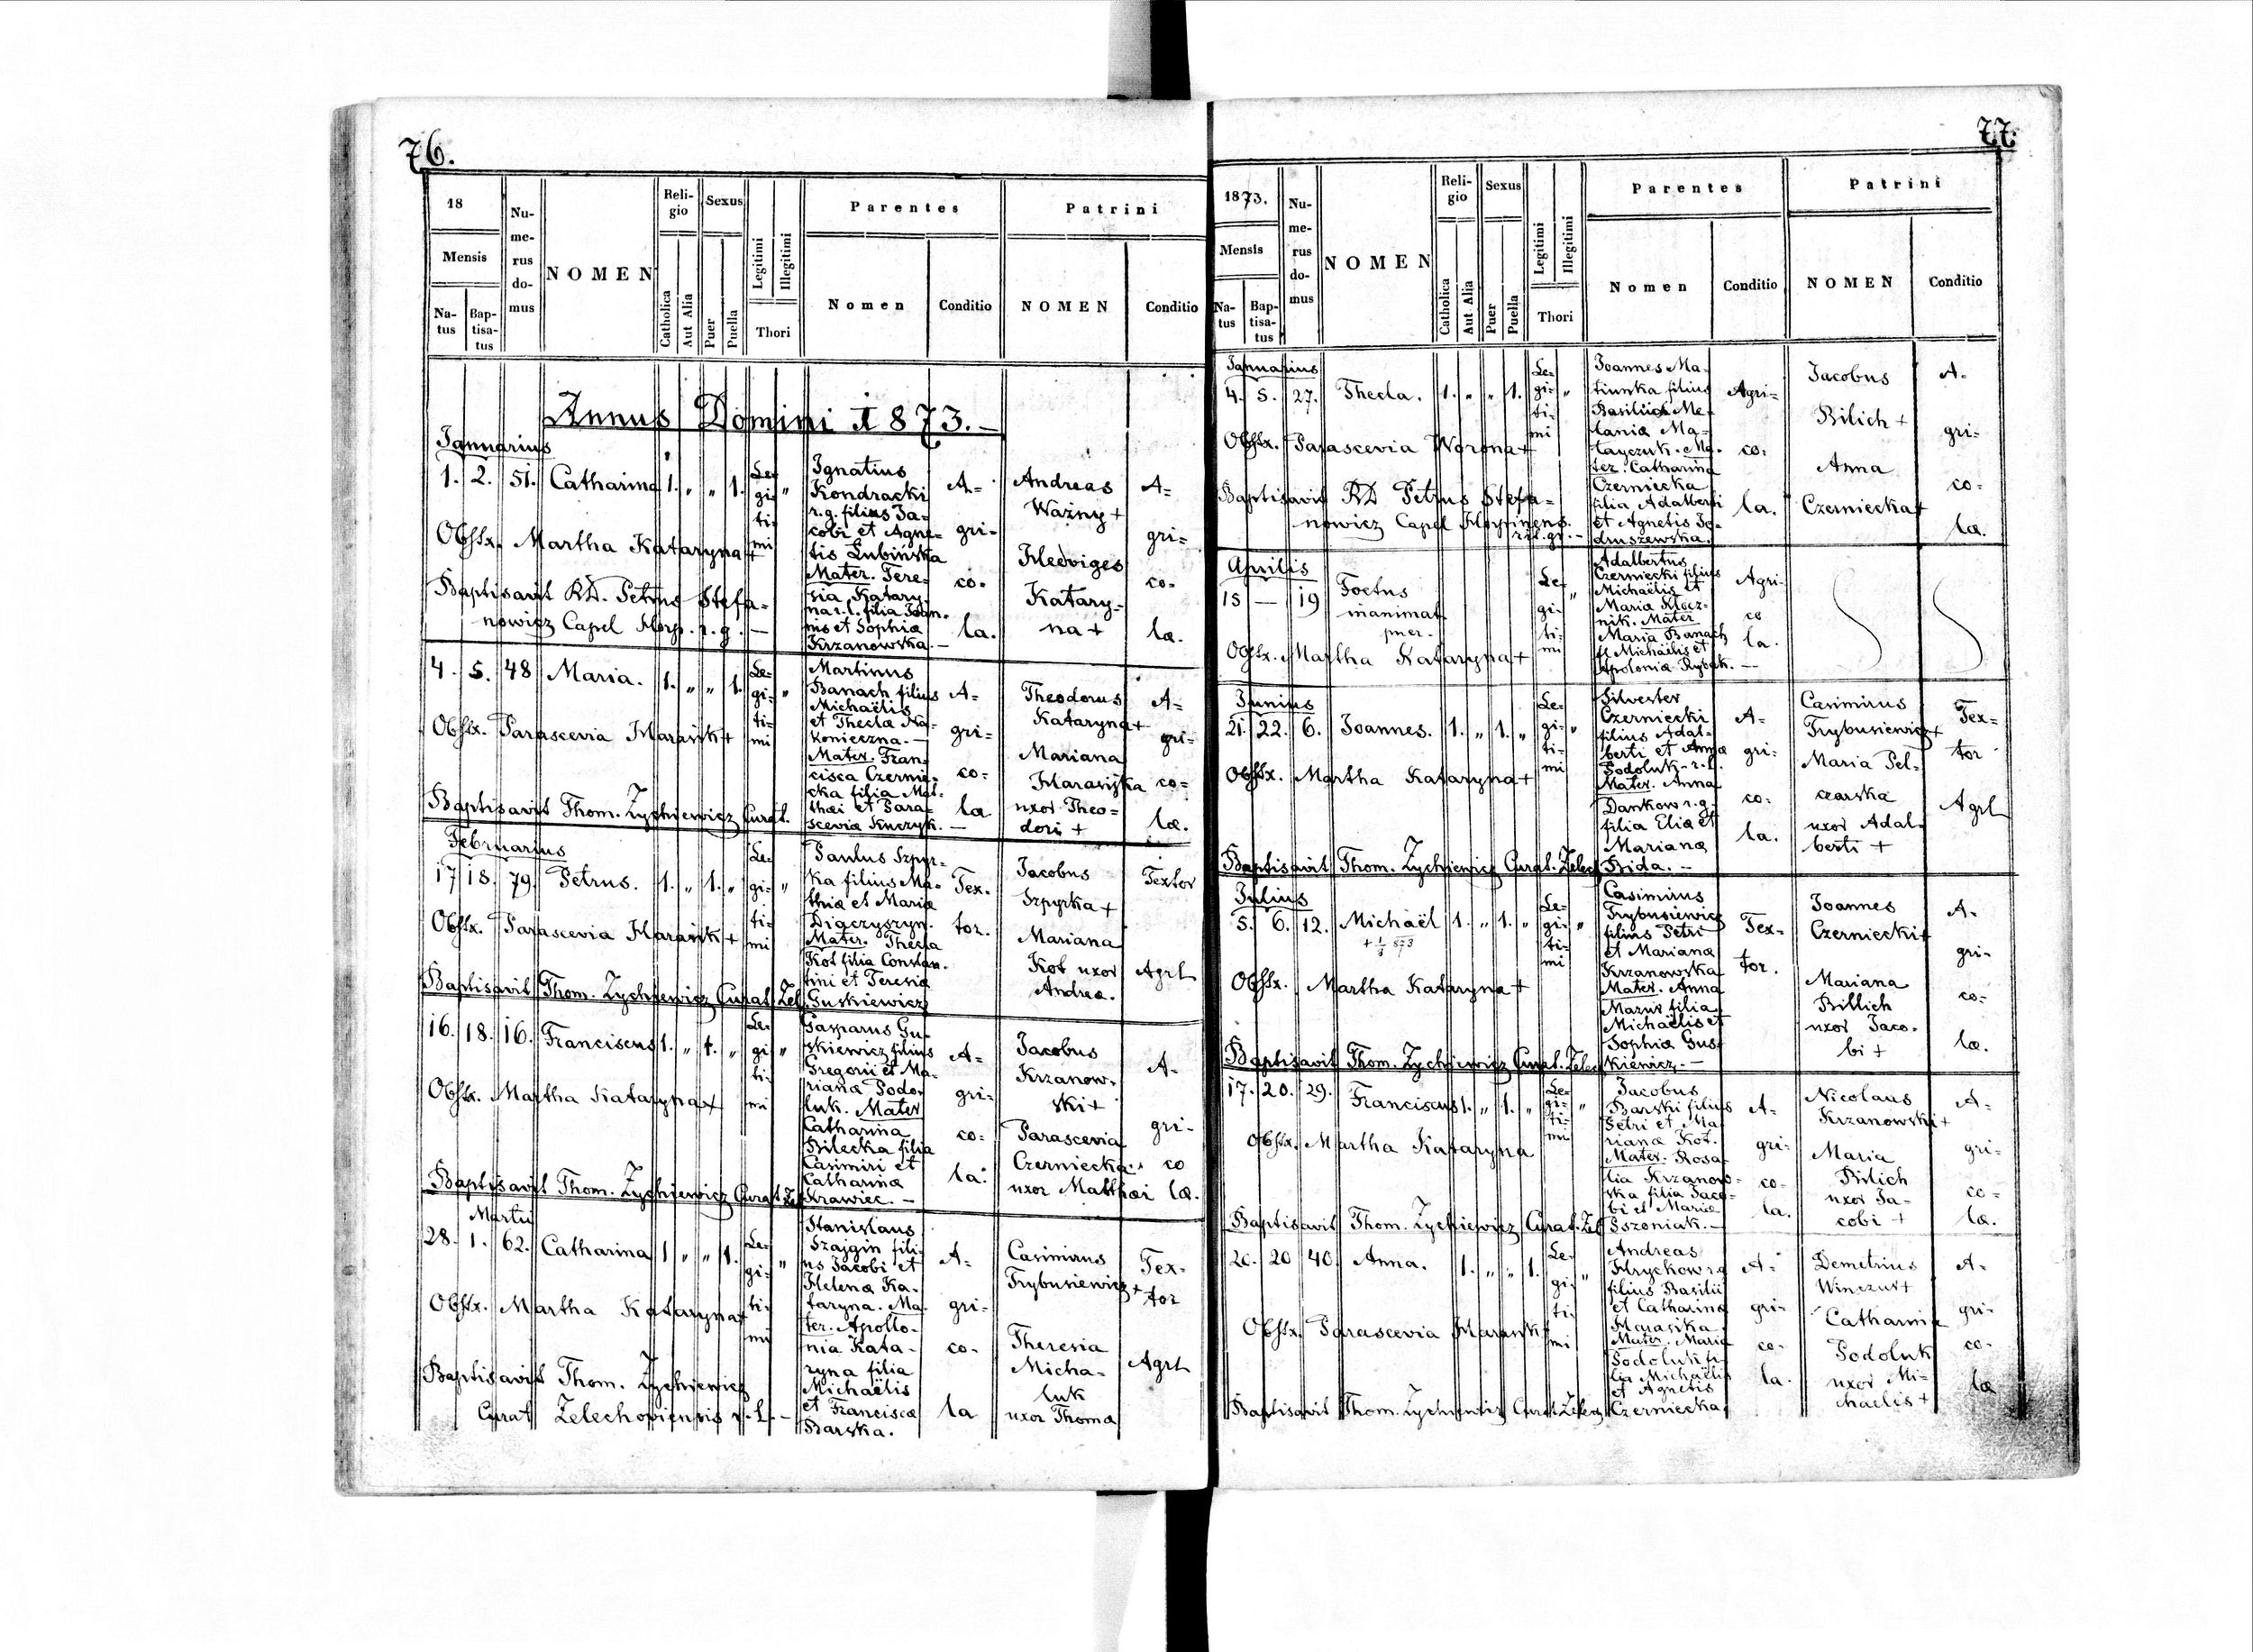 76.
18
Mensis
Na-
tus
Bap-
tisa-
tus
Nu-
me-
rus
do-
mus
NOMEN
Reli-
gio
Catholica
Aut Alia
Sexus
Puer
Puella
Legitimi
Illegitimi
Thori
Parentes
Nomen
Conditio
Patrini
NOMEN
Conditio
Annus Domini 1873.-
Januarius
1. 2. 51. Catharina 1. „ „ 1.
Le-
gi- „
ti-
mi
Obstx. Martha Kataryna +
Baptisavit RD. Petrus Stefa-
nowicz Capel Horp. r. g. —
Ignatius
Kondracki
r. g. filius Ja-
cobi et Agne-
tis Łubińska
Mater. Tere-
sia Katary-
na r. l. filia Joan-
nis et Sophiæ
Krzanowska. —
A-
gri-
co-
la.
Andreas
Ważny +
Hedviges
Katary-
na +
A-
gri-
co-
læ.
4. 5. 48 Maria. 1. „ „ 1.
Le-
gi- „
ti-
mi
Obstx. Parascevia Harasik +
Baptisavit Thom. Zychiewicz Curat.
Martinus
Banach filius
Michaëlis
et Theclæ Na-
konieczna. —
Mater. Fran-
cisca Czernie-
cka filia Mat-
thæi et Para-
sceviæ Kuczyk. —
A-
gri-
co-
la
Theodorus
Kataryna +
Mariana
Harasijka
uxor Theo-
dori +
A-
gri-
co-
læ.
Februarius
17 18. 79. Petrus. 1. „ 1. „
Le-
gi- „
ti-
mi
Obstx. Parascevia Harasik +
Baptisavit Thom. Zychiewicz Curat. Zel.
Paulus Szpyr-
ka filius Ma-
thiæ et Mariæ
Digczyszyn.
Mater. Thecla
Kot filia Constan-
tini et Teresiæ
Guskiewicz
Tex-
tor.
Jacobus
Szpyrka +
Mariana
Kot uxor
Andreæ.
Textor
Agrl
16. 18. 16. Franciscus 1. „ 1. „
Le-
gi „
ti-
mi
Obstx. Martha Kataryna +
Baptisavit Thom. Zychiewicz Curat. Zel
Gasparus Gu-
skiewicz filius
Gregorii et Ma-
rianæ Podo-
luk. Mater
Catharina
Bilecka filia
Casimiri et
Catharinæ
Krawiec. —
A-
gri-
co-
la.
Jacobus
Krzanow-
ski +
Parascevia
Czerniecka
uxor Matthæi
A-
gri-
co
læ.
Martii
28. 1. 62. Catharina 1 „ „ 1.
Le-
gi- „
ti-
mi
Obstx. Martha Kataryna +
Baptisavit Thom. Zychiewicz
Curat Zelechoviensis r. L. —
Stanislaus
Szajgin fili-
us Jacobi et
Helenæ Ka-
taryna. Ma-
ter. Apollo-
nia Kata-
ryna filia
Michaëlis
et Franciscæ
Barska.
A-
gri-
co-
la
Casimirus
Trybusiewicz +
Theresia
Micha-
luk
uxor Thomæ
Tex-
tor
Agrl
77.
1873.
Mensis
Na-
tus
Bap-
tisa-
tus
Nu-
me-
rus
do-
mus
NOMEN
Reli-
gio
Catholica
Aut Alia
Sexus
Puer
Puella
Legitimi
Illegitimi
Thori
Parentes
Nomen
Conditio
Patrini
NOMEN
Conditio
Januarius
4. 5. 27. Thecla. 1. „ „ 1.
Le-
gi- „
ti-
mi
Obstx. Parascevia Worona +
Baptisavit RD Petrus Stefa-
nowicz Capel Horpinens.
rit. gr. —
Joannes Ma-
tiuska filius
Basilii et Me-
laniæ Ma-
tayczuk. Ma-
ter. Catharina
Czerniecka
filia Adalberti
et Agnetis Je-
druszewska.
Agri-
co-
la.
Jacobus
Bilich +
Anna
Czerniecka +
A-
gri-
co-
læ.
Aprilis
15 — 19 Foetus
inanimat.
puer.
Le-
gi- „
ti-
mi
Obstx. Martha Kataryna +
Adalbertus
Czerniecki filius
Michaëlis et
Mariæ Klocz-
nik. Mater
Maria Banach
fl Michaëlis et
Apoloniæ Rybak. —
Agri-
co
la.
Junius
21. 22. 6. Joannes. 1. „ 1. „
Le-
gi- „
ti-
mi
Obstx. Martha Kataryna +
Baptisavit Thom. Zychiewicz Curat. Zelec
Silvester
Czerniecki
filius Adal-
berti et Annæ
Podoluk r. l.
Mater. Anna
Dankow r. g.
filia Eliæ et
Marianæ
Bida. —
A-
gri-
co-
la.
Casimirus
Trybusiewicz +
Maria Pel-
czarska
uxor Adal-
berti +
Tex-
tor
Agrl
Julius
5. 6. 12. Michaël 1. „ 1. „
Le-
gi- „
ti-
mi
Obstx. Martha Kataryna +
Baptisavit Thom. Zychiewicz Curat. Zelec
Casimirus
Trybusiewicz
filius Petri
et Marianæ
Krzanowska
Mater. Anna
Mazur filia
Michaëlis et
Sophiæ Gus-
kiewicz. —
Tex-
tor.
Joannes
Czerniecki +
Mariana
Billich
uxor Jaco-
bi +
A-
gri-
co-
læ.
17. 20. 29. Franciscus 1. „ 1. „
Le-
gi- „
ti-
mi
Obstx. Martha Kataryna
Baptisavit Thom. Zychiewicz Curat. Zel
Jacobus
Barski filius
Petri et Ma-
rianæ Kot.
Mater. Rosa-
lia Krzanow-
ska filia Jaco-
bi et Mariæ
Sszeniak. —
A-
gri-
co-
la.
Nicolaus
Krzanowski +
Maria
Bilich
uxor Ja-
cobi +
A-
gri-
co-
læ.
20. 20 40. Anna. 1. „ „ 1.
Le-
gi- „
ti-
mi
Obstx. Parascevia Harasik +
Baptisavit Thom. Zychiewicz Curat Zelec
Andreas
Hryckow r. g
filius Basilii
et Catharinæ
Harasika.
Mater. Maria
Podoluk fi-
lia Michaëlis
et Agnetis
Czerniecka.
A-
gri-
co-
la.
Demetrius
Winczur +
Catharina
Podoluk
uxor Mi-
chaelis +
A-
gri-
co-
læ